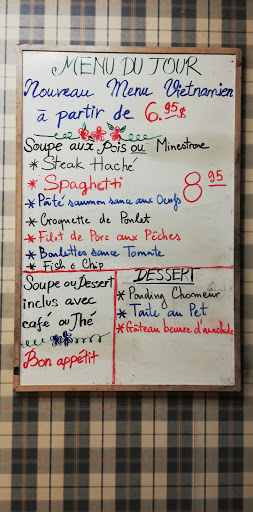 MENU DU JOUR
Nouveau Menu Vietnamien
à partir de 6.95$
Soupe aux Pois ou Minestrone
* Steak Haché
* Spaghetti
8.95
* Pâté saumon sauce aux Oeufs
* Croquette de Poulet
* Filet de Porc aux Pêches
* Boulettes sauce Tomate
* Fish & Chip
Soupe ou Dessert
inclus avec
café ou Thé
Bon appétit
DESSERT
* Pouding Chomeur
* Taite au Pet
* Gâteau beurre d'arachide